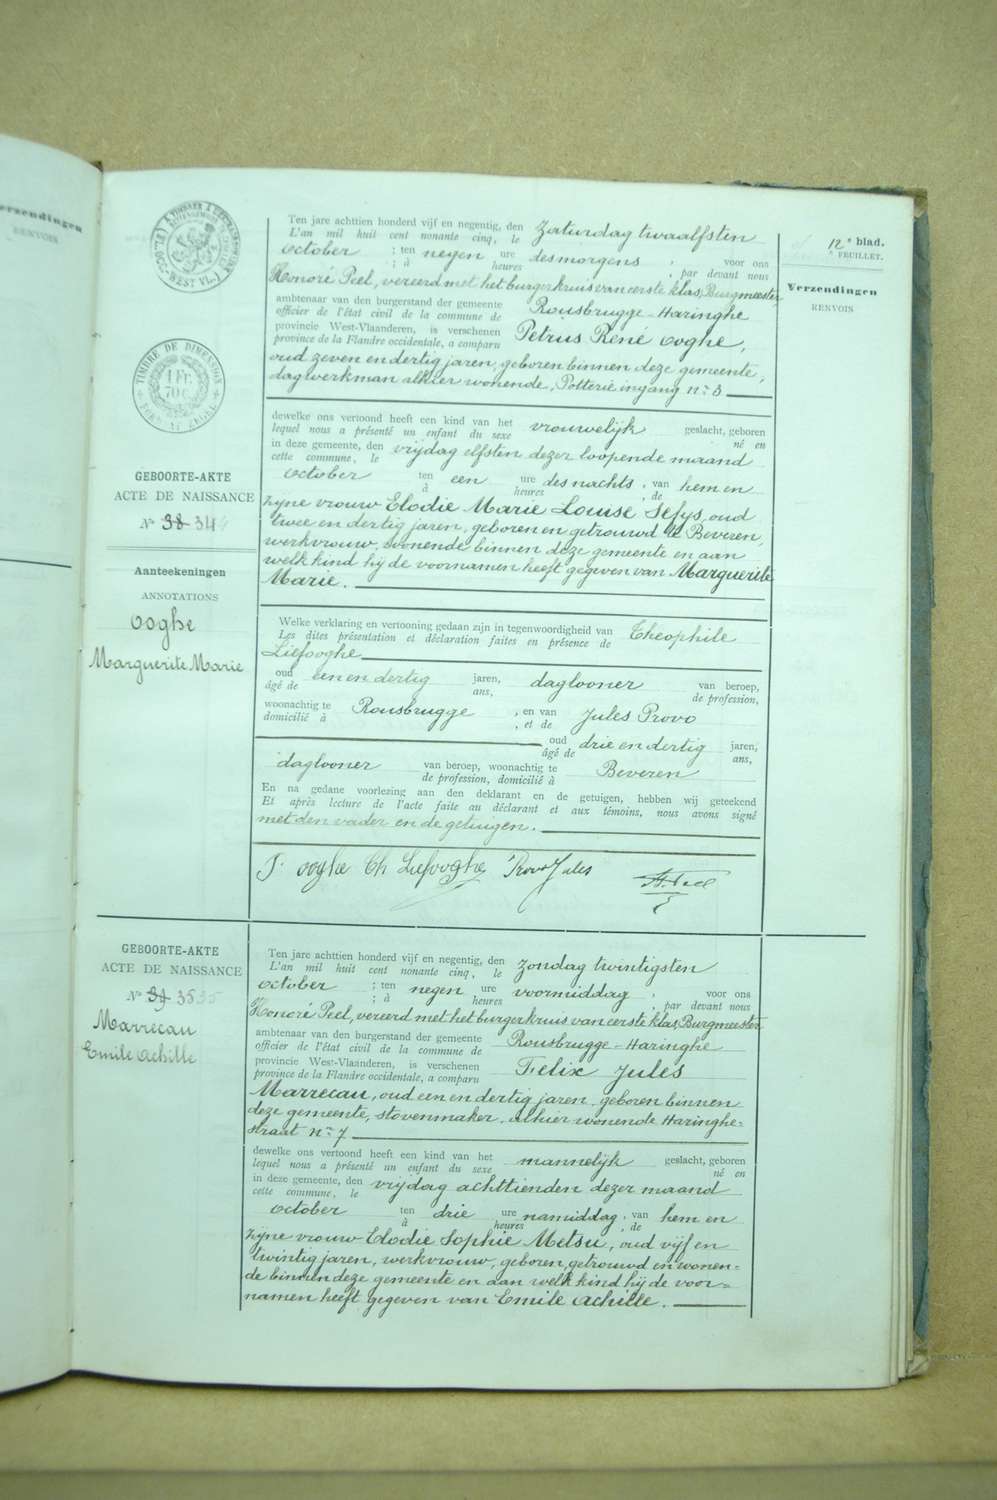 Verzendingen
RENVOIS
12e blad.
FEUILLET.
Verzendingen
RENVOIS
TIMBRE DE DIMENSION
1 Fr.
70 c.
GEBOORTE-AKTE
ACTE DE NAISSANCE
No 38 34
Aanteekeningen
ANNOTATIONS
Ooghe
Marguerite Marie
Ten jare achttien honderd vijf en negentig, den Zaturdag twaalfsten
L'an mil huit cent nonante cinq, le
October ; ten negen ure des morgens , voor ons
; à heures , par devant nous
Honoré Peel, vereerd met het burgerkruis van eerste klas, Burgmeester
ambtenaar van den burgerstand der gemeente Rousbrugge-Haringhe
officier de l'état civil de la commune de
provincie West-Vlaanderen, is verschenen Petrus René Ooghe,
province de la Flandre occidentale, a comparu
oud zeven en dertig jaren, geboren binnen deze gemeente,
dagwerkman alhier wonende, Potterie ingang nr 3
dewelke ons vertoond heeft een kind van het vrouwelijk geslacht, geboren
lequel nous a présenté un enfant du sexe né en
in deze gemeente, den vrijdag elfsten dezer loopende maand
cette commune, le
October ten een ure des nachts , van hem en
à heures , de
zijne vrouw Elodie Marie Louise Sefys, oud
twee en dertig jaren, geboren en getrouwd te Beveren,
werkvrouw, wonende binnen deze gemeente en aan
welk kind hij de voornamen heeft gegeven van Marguerite
Marie.
Welke verklaring en vertooning gedaan zijn in tegenwoordigheid van Theophile
Les dites présentation et déclaration faites en présence de
Liefooghe
oud een en dertig jaren, daglooner van beroep,
âgé de ans, de profession,
woonachtig te Rousbrugge , en van Jules Provo
domicilié à , et de
oud drie en dertig jaren,
âgé de ans,
daglooner van beroep, woonachtig te Beveren
de profession, domicilié à
En na gedane voorlezing aan den deklarant en de getuigen, hebben wij geteekend
Et après lecture de l'acte faite au déclarant et aux témoins, nous avons signé
met den vader en de getuigen.
P. Ooghe Th Liefooghe Provo Jules H. Peel
GEBOORTE-AKTE
ACTE DE NAISSANCE
No 39 35 35
Marrecau
Emile Achille
Ten jare achttien honderd vijf en negentig, den Zondag twintigsten
L'an mil huit cent nonante cinq, le
October ; ten negen ure voormiddag , voor ons
; à heures , par devant nous
Honoré Peel, vereerd met het burgerkruis van eerste klas, Burgmeester
ambtenaar van den burgerstand der gemeente Rousbrugge-Haringhe
officier de l'état civil de la commune de
provincie West-Vlaanderen, is verschenen Felix Jules
province de la Flandre occidentale, a comparu
Marrecau, oud een en dertig jaren, geboren binnen
deze gemeente, stovenmaker, alhier wonende Haringhe=
straat nr 7
dewelke ons vertoond heeft een kind van het mannelijk geslacht, geboren
lequel nous a présenté un enfant du sexe né en
in deze gemeente, den vrijdag achttienden dezer maand
cette commune, le
October ten drie ure namiddag , van hem en
à heures , de
zijne vrouw Elodie Sophie Metsu, oud vijf en
twintig jaren, werkvrouw, geboren, getrouwd en wonen=
de binnen deze gemeente en aan welk kind hij de voor=
namen heeft gegeven van Emile Achille.